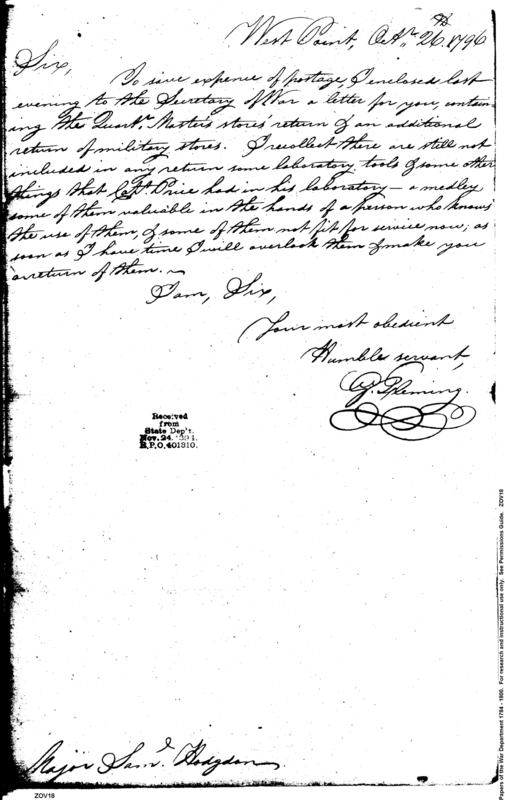 West Point, Octr. 26th. 1796
Sir,
To save expence of postage, I enclosed last
evening to the Secretary of War a letter for you, contain-
ing the Quartr. Master's stores return & an additional
return of military stores. I recollect there are still not
included in any return some laboratory tools & some other
things that Capt. Price had in his laboratory - a medley
some of them valuable in the hands of a person who knows
the use of them, & some of them not fit for service now; as
soon as I have time I will overlook them & make you
a return of them.
I am, Sir,
Your most obedient
Humble servant,
G. Fleming.
Received
from
State Dep't.
Nov. 24. 1894.
R.P.O. 401310.
Major Saml. Hodgdon
ZOV18
Papers of the War Department 1784 - 1800. For research and instructional use only. See Permissions Guide. ZOV18